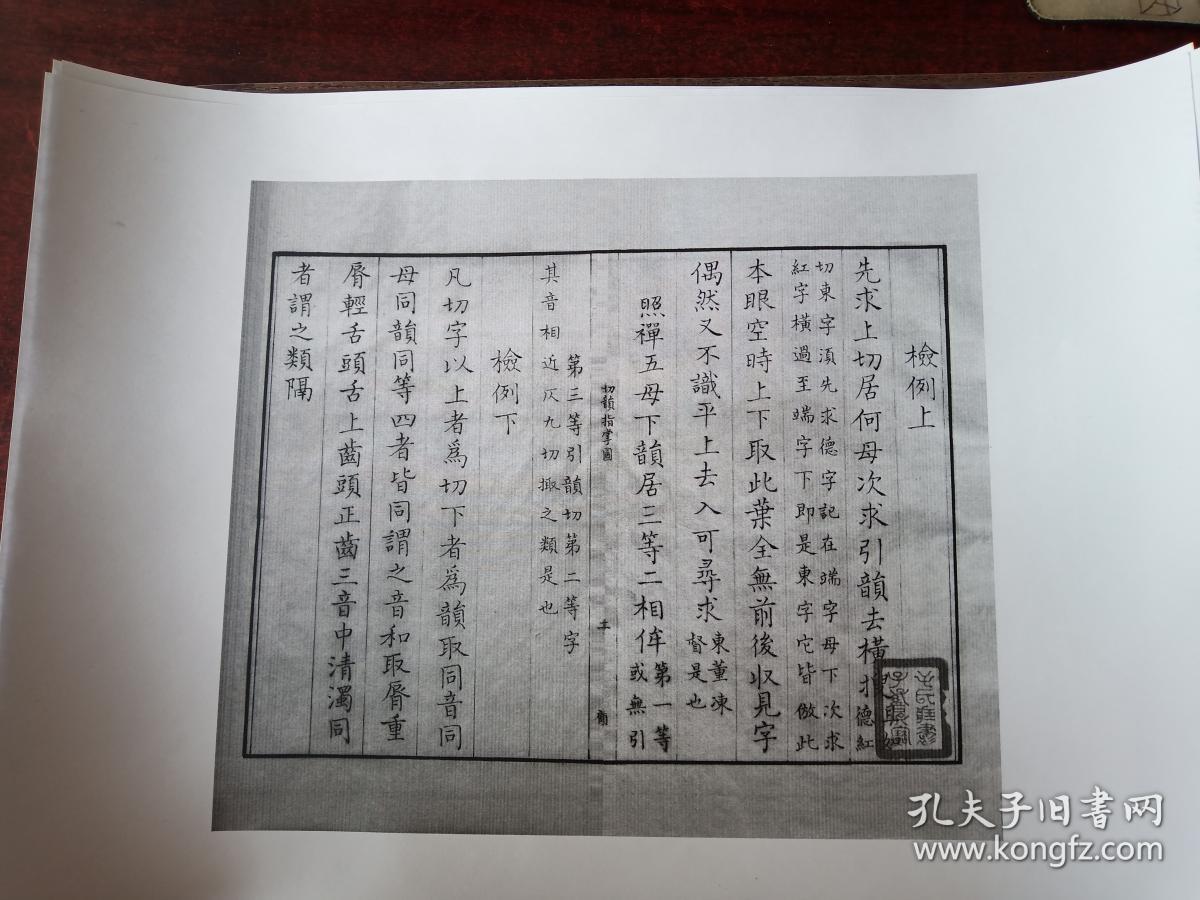 檢例上
先求上切居何母次求引韻去橫
德紅
切東字湏先求德字記在端字母下次求
紅字橫過至端字下即是東字它皆倣此
本眼空時上下取此葉全無前後収見字
偶然又不識平上去入可尋求
東董凍
督是也
照禪五母下韻居三等二相侔
第一等
或無引
切韻指掌圖
第三等引韻切第二等字
其音相近仄九切掫之類是也
檢例下
凡切字以上者爲切下者爲韻取同音同
母同韻同等四者皆同謂之音和取脣重
脣輕舌頭舌上齒頭正齒三音中清濁同
者謂之類隔
孔夫子旧书网
www.kongfz.com